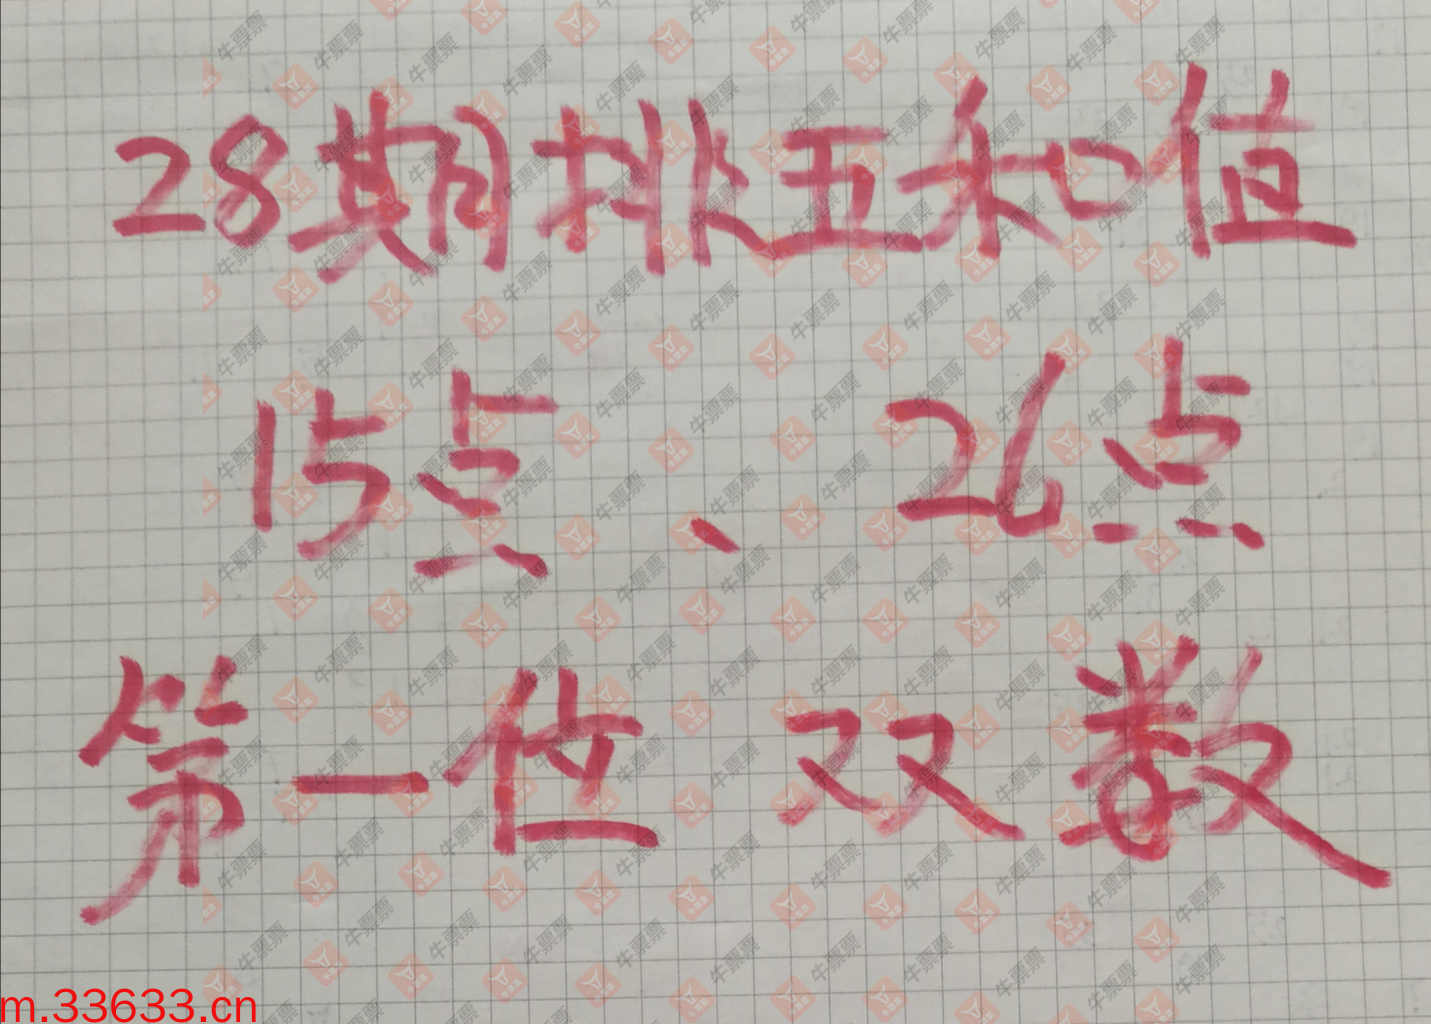 28期排五和值
15点、26点
第一位 双数
m.33633.cn
牛票票